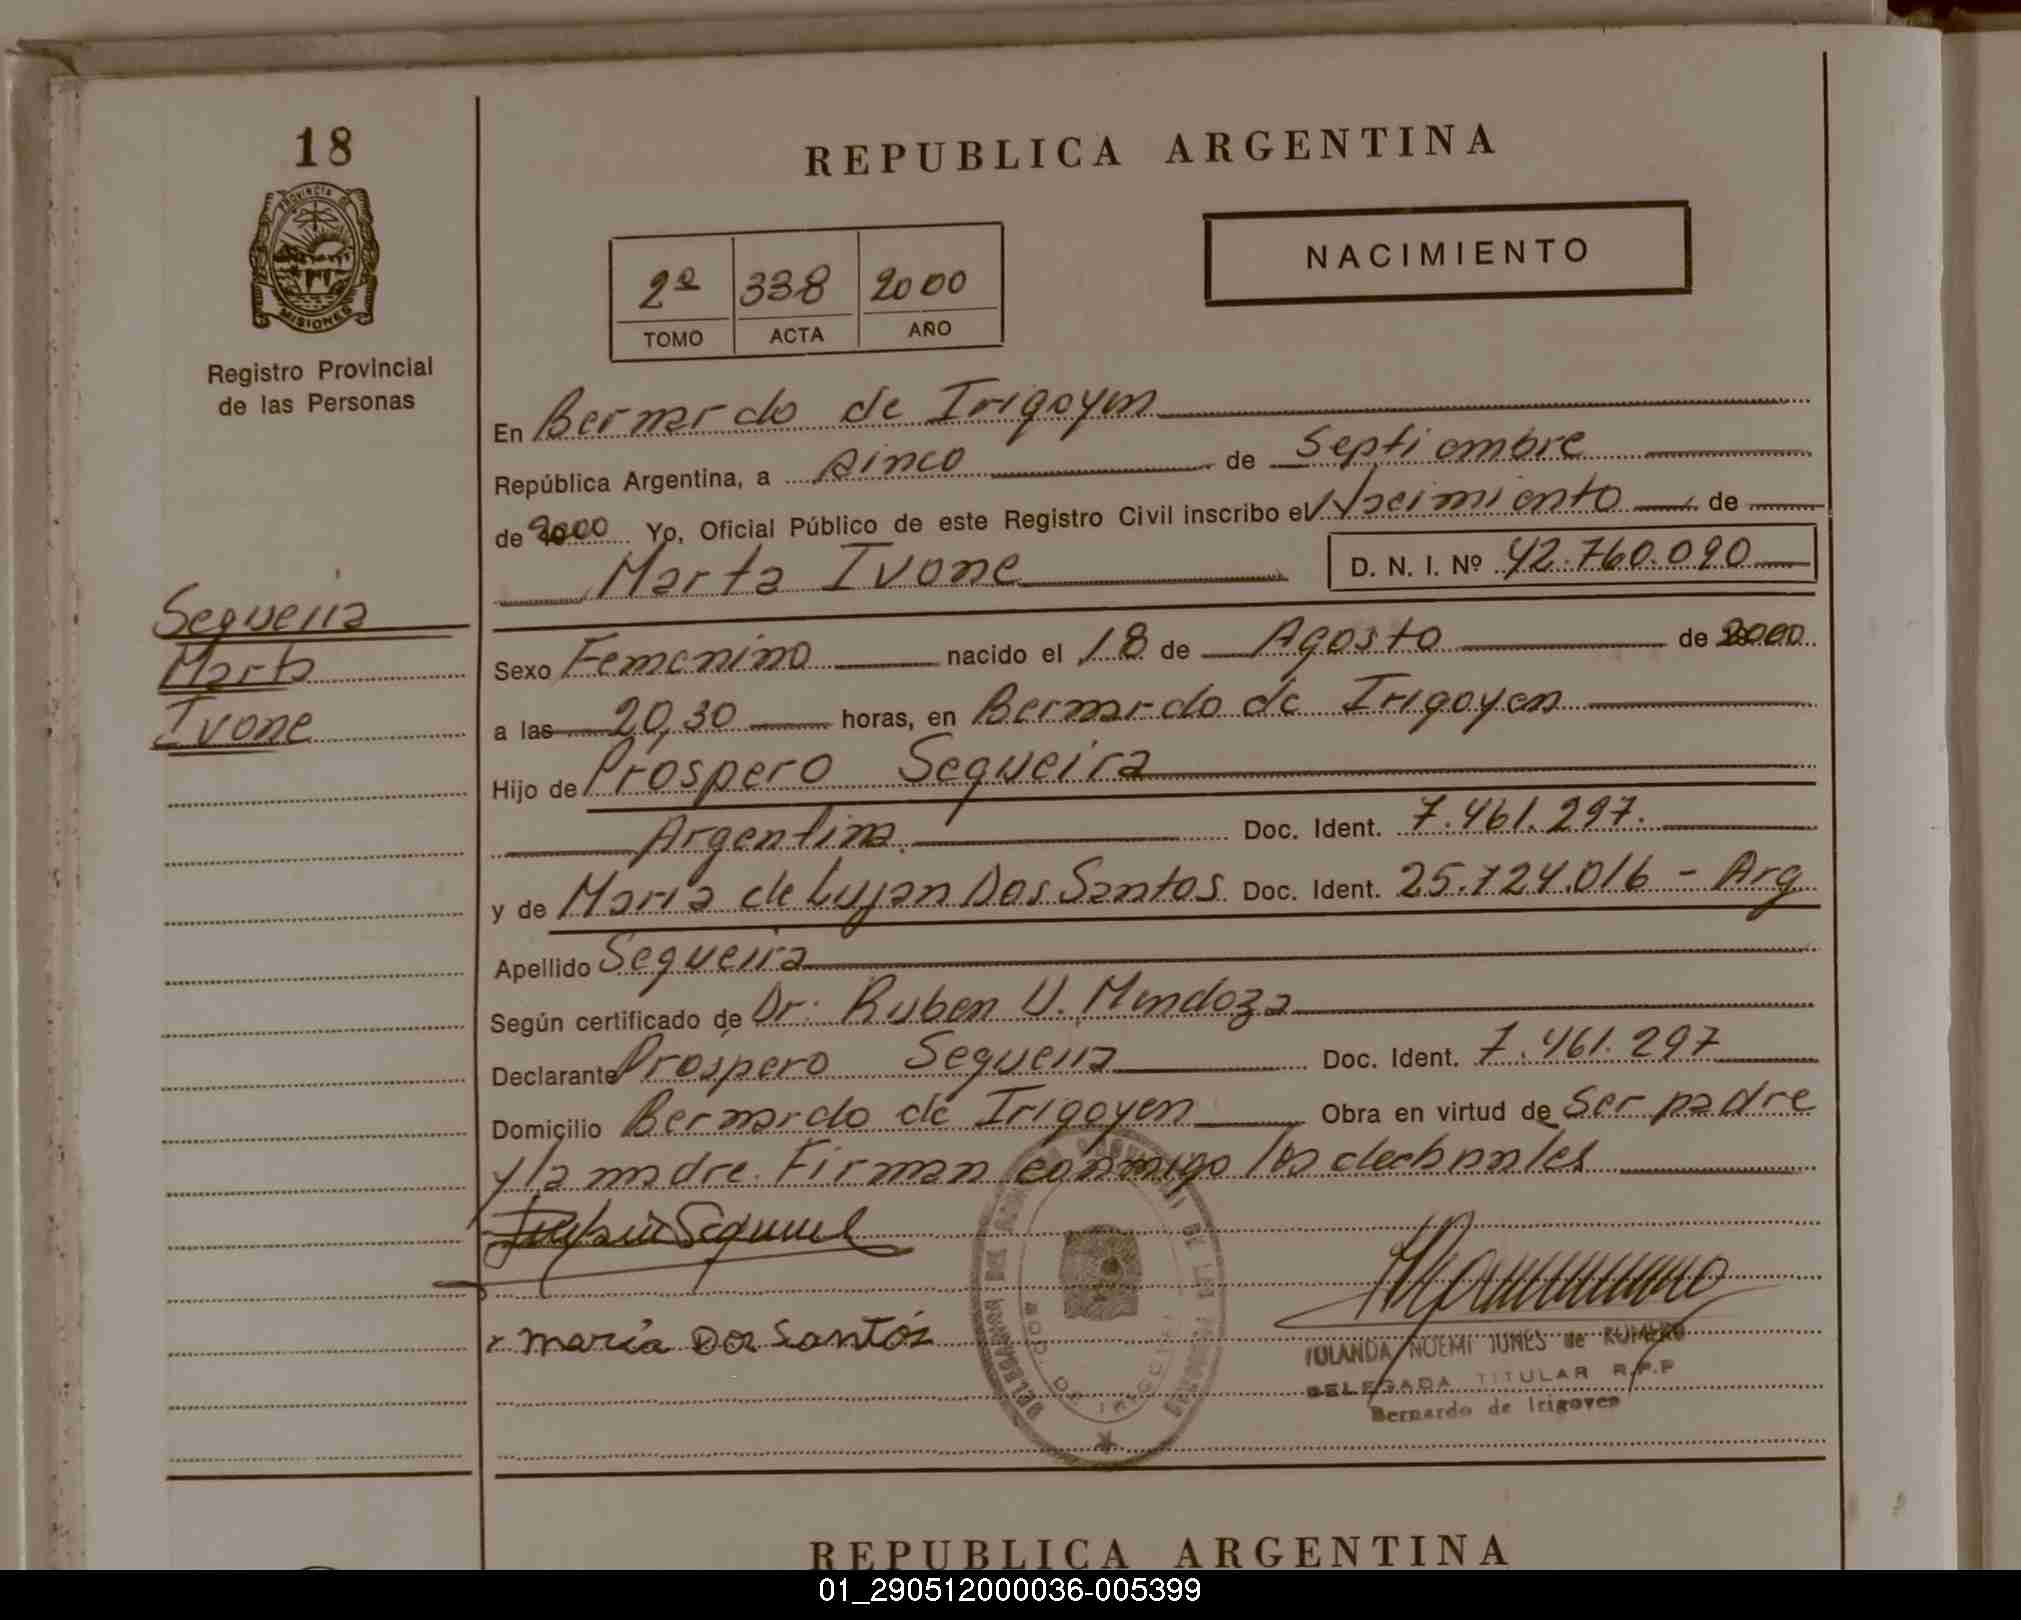 18
PROVINCIA DE
MISIONES
Registro Provincial
de las Personas
Sequeira
Marta
Ivone
REPUBLICA ARGENTINA
NACIMIENTO
2º 338 2000
TOMO ACTA AÑO
En Bernardo de Irigoyen
República Argentina, a cinco de Septiembre
de 2000 Yo, Oficial Público de este Registro Civil inscribo el Nacimiento de
Marta Ivone D. N. I. Nº 42.760.090
Sexo Femenino nacido el 18 de Agosto de 2000
a las 20,30 horas, en Bernardo de Irigoyen
Hijo de Próspero Sequeira
Argentina. Doc. Ident. 7.461.297.
y de María de Lujan Dos Santos Doc. Ident. 25.724.016 - Arg
Apellido Sequeira
Según certificado de Dr. Ruben V. Mendoza
Declarante Próspero Sequeira Doc. Ident. 7.461.297
Domicilio Bernardo de Irigoyen Obra en virtud de Ser padre
y la madre. Firman conmigo los declarantes
maria Dos Santos
YOLANDA NOEMI JUNES de ROMERO
DELEGADA TITULAR R.P.P
Bernardo de Irigoyen
REPUBLICA ARGENTINA
01_290512000036-005399